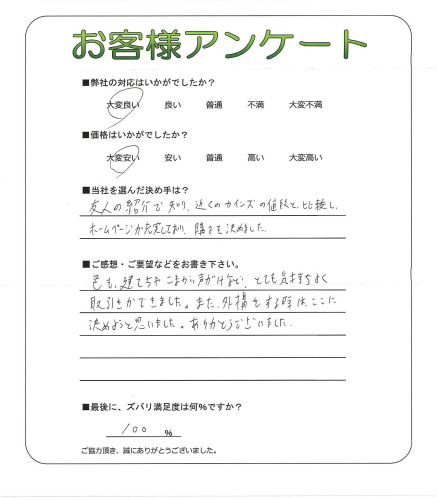 お客様アンケート
■弊社の対応はいかがでしたか？
大変良い 良い 普通 不満 大変不満
■価格はいかがでしたか？
大変安い 安い 普通 高い 大変高い
■当社を選んだ決め手は？
友人の紹介で知り、近くのカインズの値段と、比較し、
ホームページが充実しており、購入を決めました。
■ご感想・ご要望などをお書き下さい。
色も、建てちゃ こまかい声がけなど、とても気持ちよく
取引きができました。また、外構をする時は、ここに
決めようと思いました。ありがとうございました。
■最後に、ズバリ満足度は何％ですか？
100 ％
ご協力頂き、誠にありがとうございました。